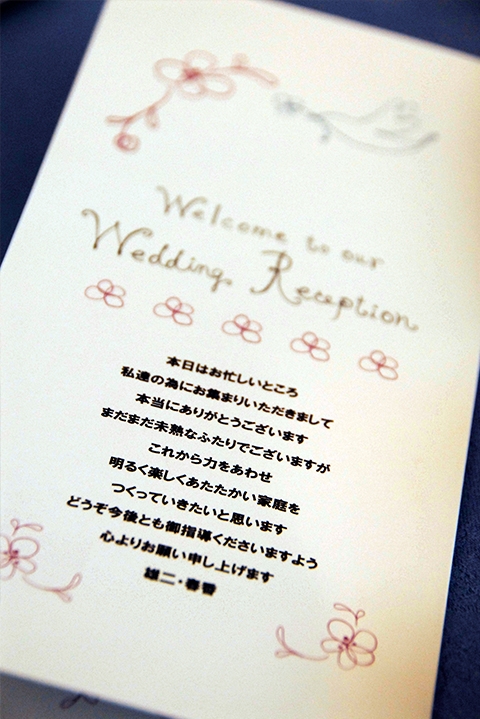 Welcome to our
Wedding Reception
本日はお忙しいところ
私達の為にお集まりいただきまして
本当にありがとうございます
まだまだ未熟なふたりでございますが
これから力をあわせ
明るく楽しくあたたかい家庭を
つくっていきたいと思います
どうぞ今後とも御指導くださいますよう
心よりお願い申し上げます
雄二・春香